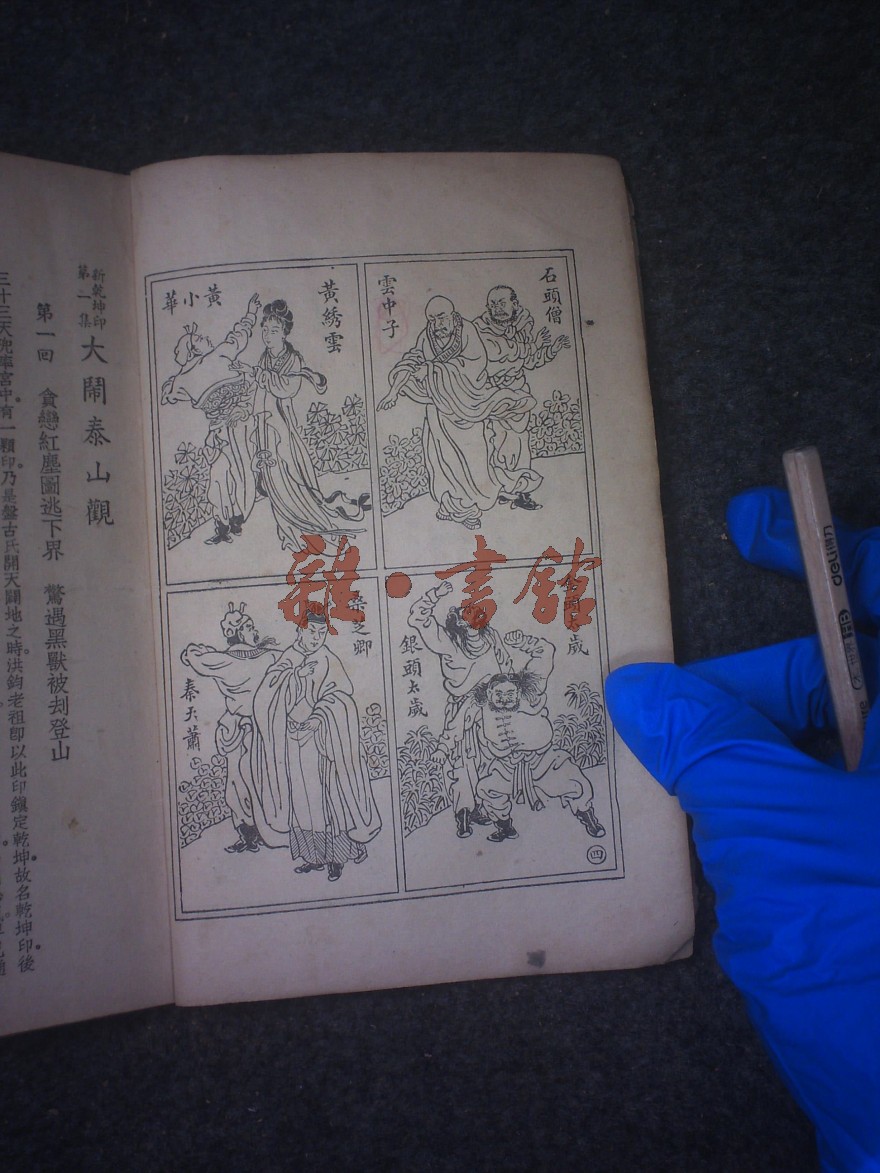 石頭僧
雲中子
黃綉雲
黃小華
金頭太歲
銀頭太歲
梁芝卿
秦天蕭
四
新乾坤印
第一集
大鬧泰山觀
第一回　貪戀紅塵圖逃下界　驚遇黑獸被刦登山
三十三天兜率宮中有一顆印乃是盤古氏開天闢地之時洪鈞老祖卽以此印鎮定乾坤故名乾坤印後
雜·書館
deli